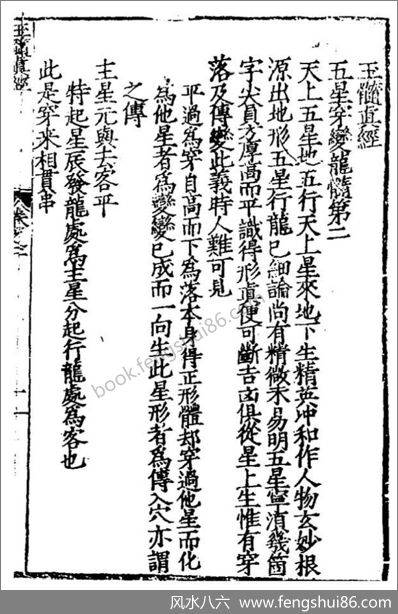 玉髓真經
五星穿變龍髓第二
天上五星地五行天上星來地下生精英冲和作人物玄妙根
源出地形五星行龍已細論尚有精微未易明五星寧湏幾箇
字尖員方厚高而平識得形真便可斷吉凶俱從星上生惟有穿
落及傳變此義時人難可見
平過為穿自高而下為落本身得正形體却穿過他星而化
為他星者為變變已成而一向生此星形者為傳入穴亦謂
之傳
主星元與去客平
特起星辰發龍處為主星分起行龍處為客也
此是穿來相貫串
book.fengshui86.com
风水八六：www.fengshui86.com